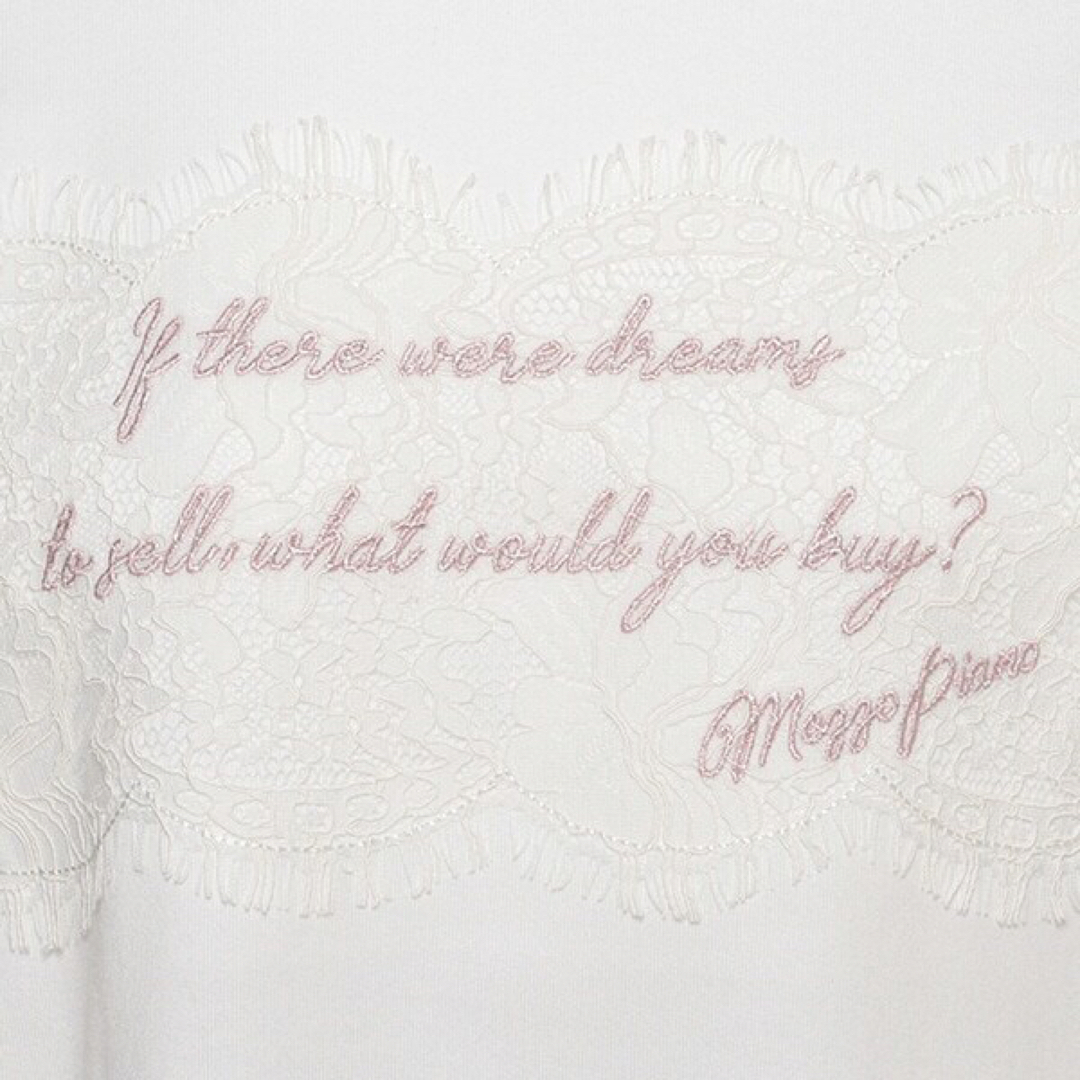 If there were dreams
to sell,, what would you buy?
Mezzo Piano